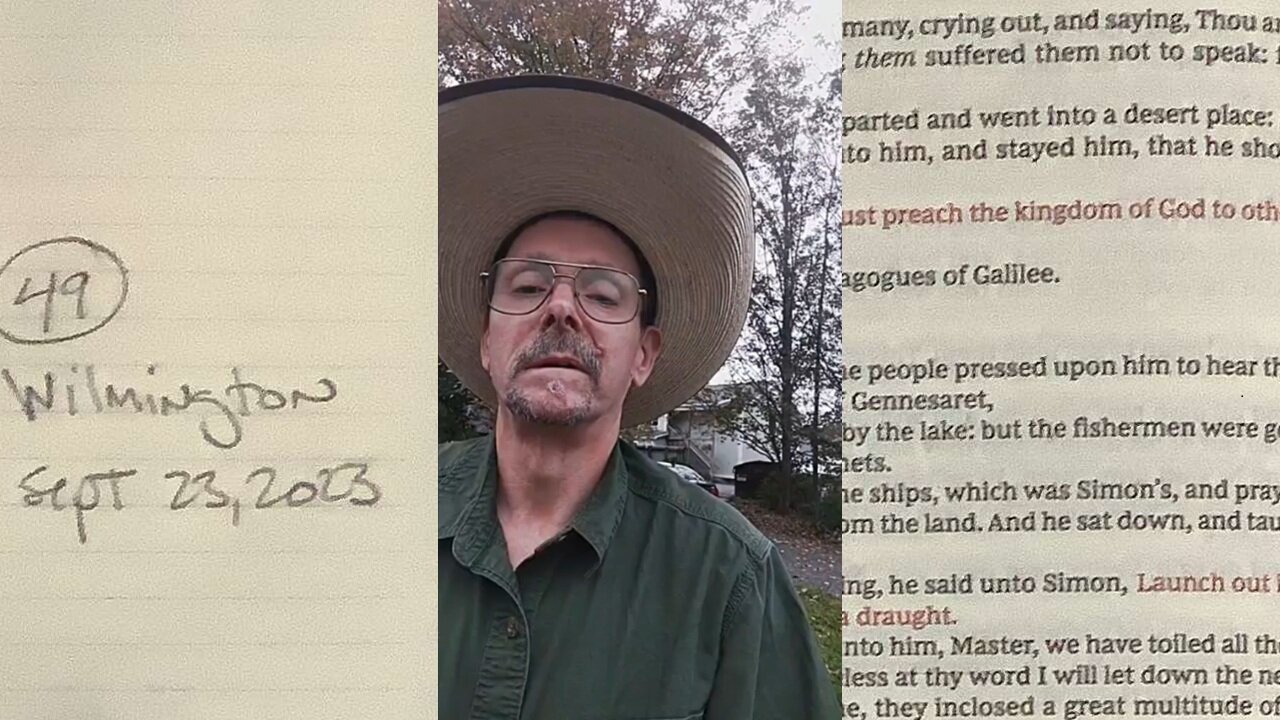 49
Wilmington
Sept 23, 2023
many, crying out, and saying, Thou
them suffered them not to speak:
parted and went into a desert place:
to him, and stayed him, that he sho
ust preach the kingdom of God to oth
agogues of Galilee.
e people pressed upon him to hear th
Gennesaret,
by the lake: but the fishermen were go
nets.
e ships, which was Simon's, and pray
om the land. And he sat down, and tau
ing, he said unto Simon, Launch out
a draught.
nto him, Master, we have toiled all the
less at thy word I will let down the ne
e, they inclosed a great multitude of